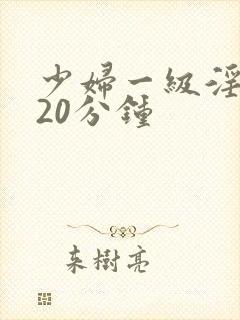 少婦一級淫
20分鍾
来樹亮